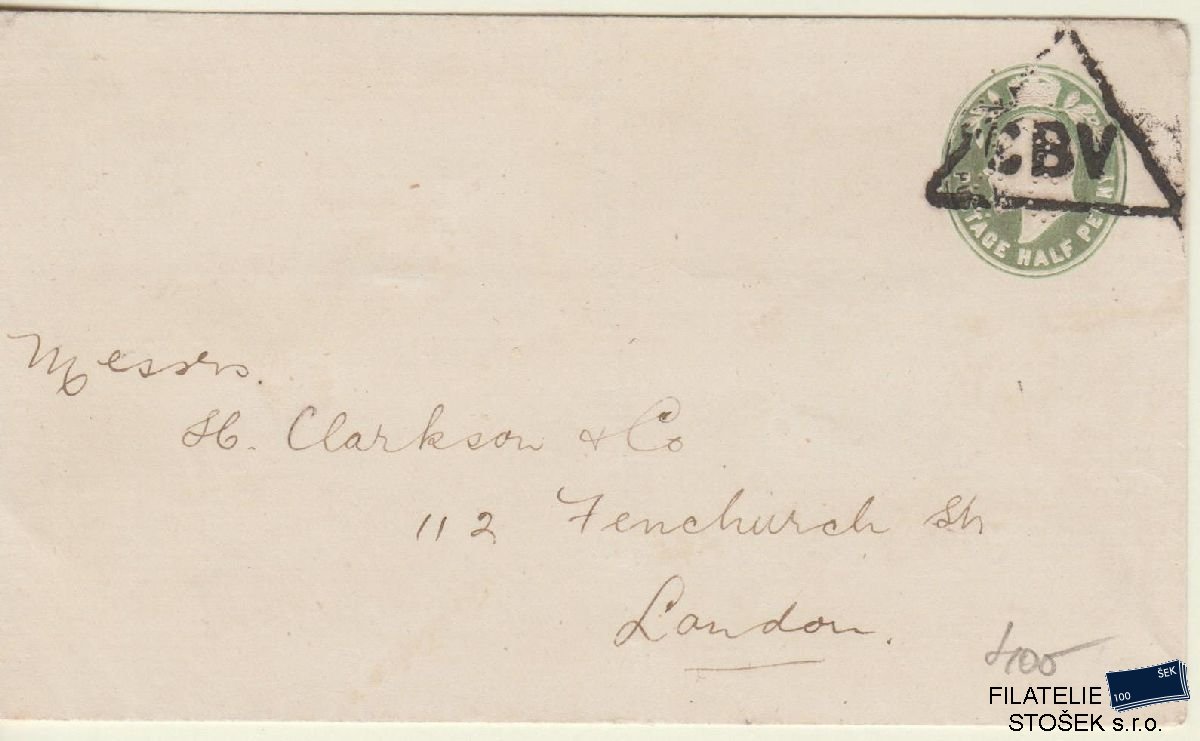 CBV
POSTAGE HALF PENNY
Messrs.
H. Clarkson & Co
112 Fenchurch St
London.
400
ŠEK
100
FILATELIE
STOŠEK s.r.o.